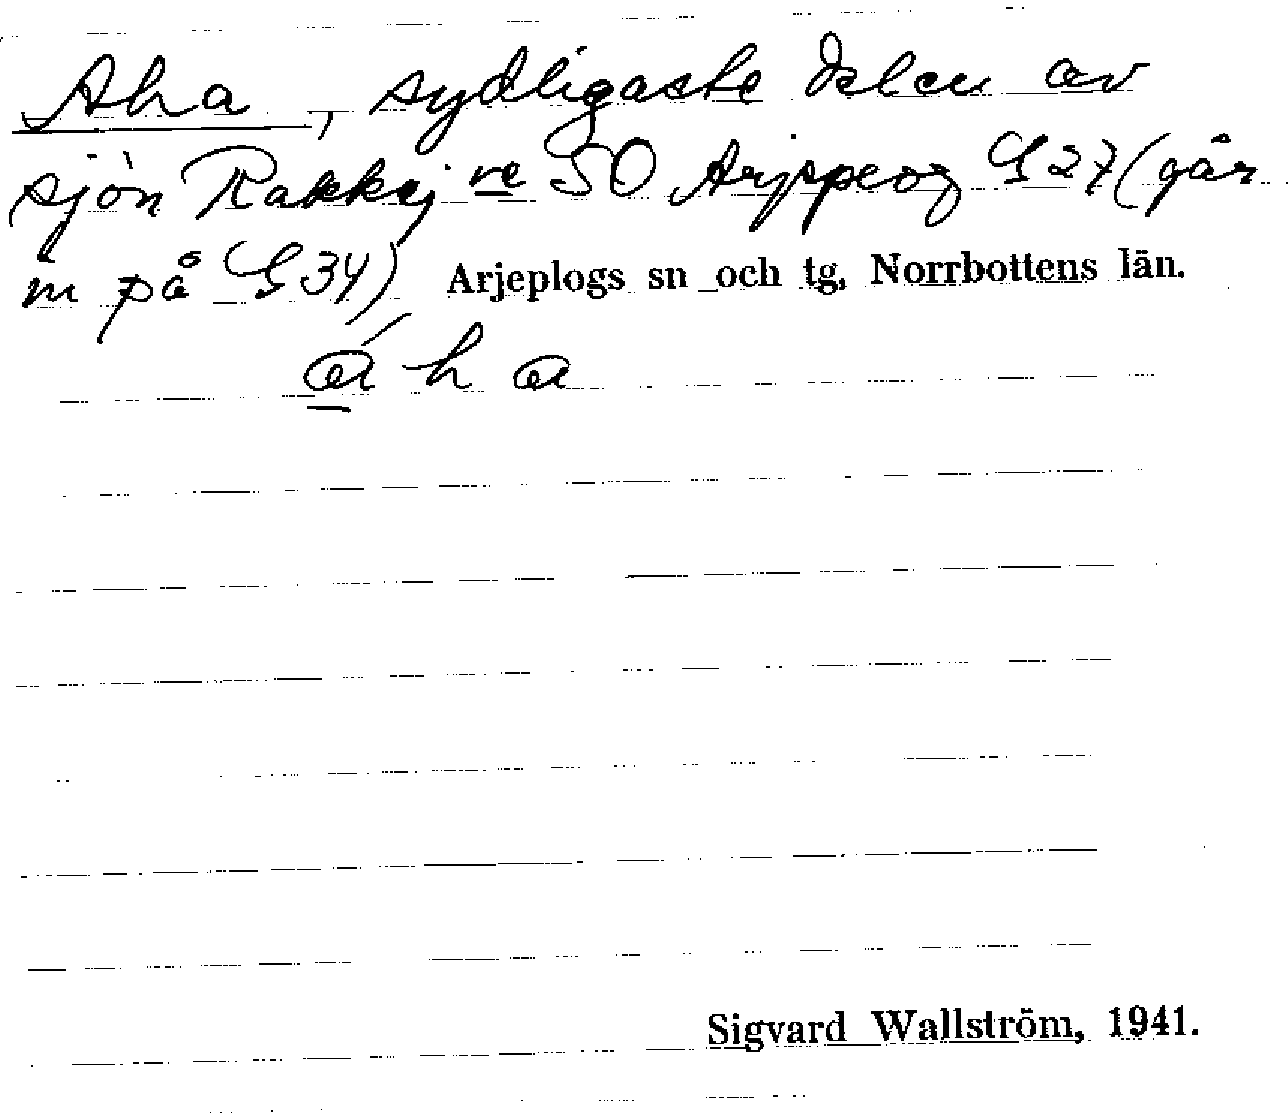 Aha, sydligaste delen av
sjön Rakkejve SO Arjeppeog G27 (går
in på G34) Arjeplogs sn och tg, Norrbottens län.
áha
Sigvard Wallström, 1941.